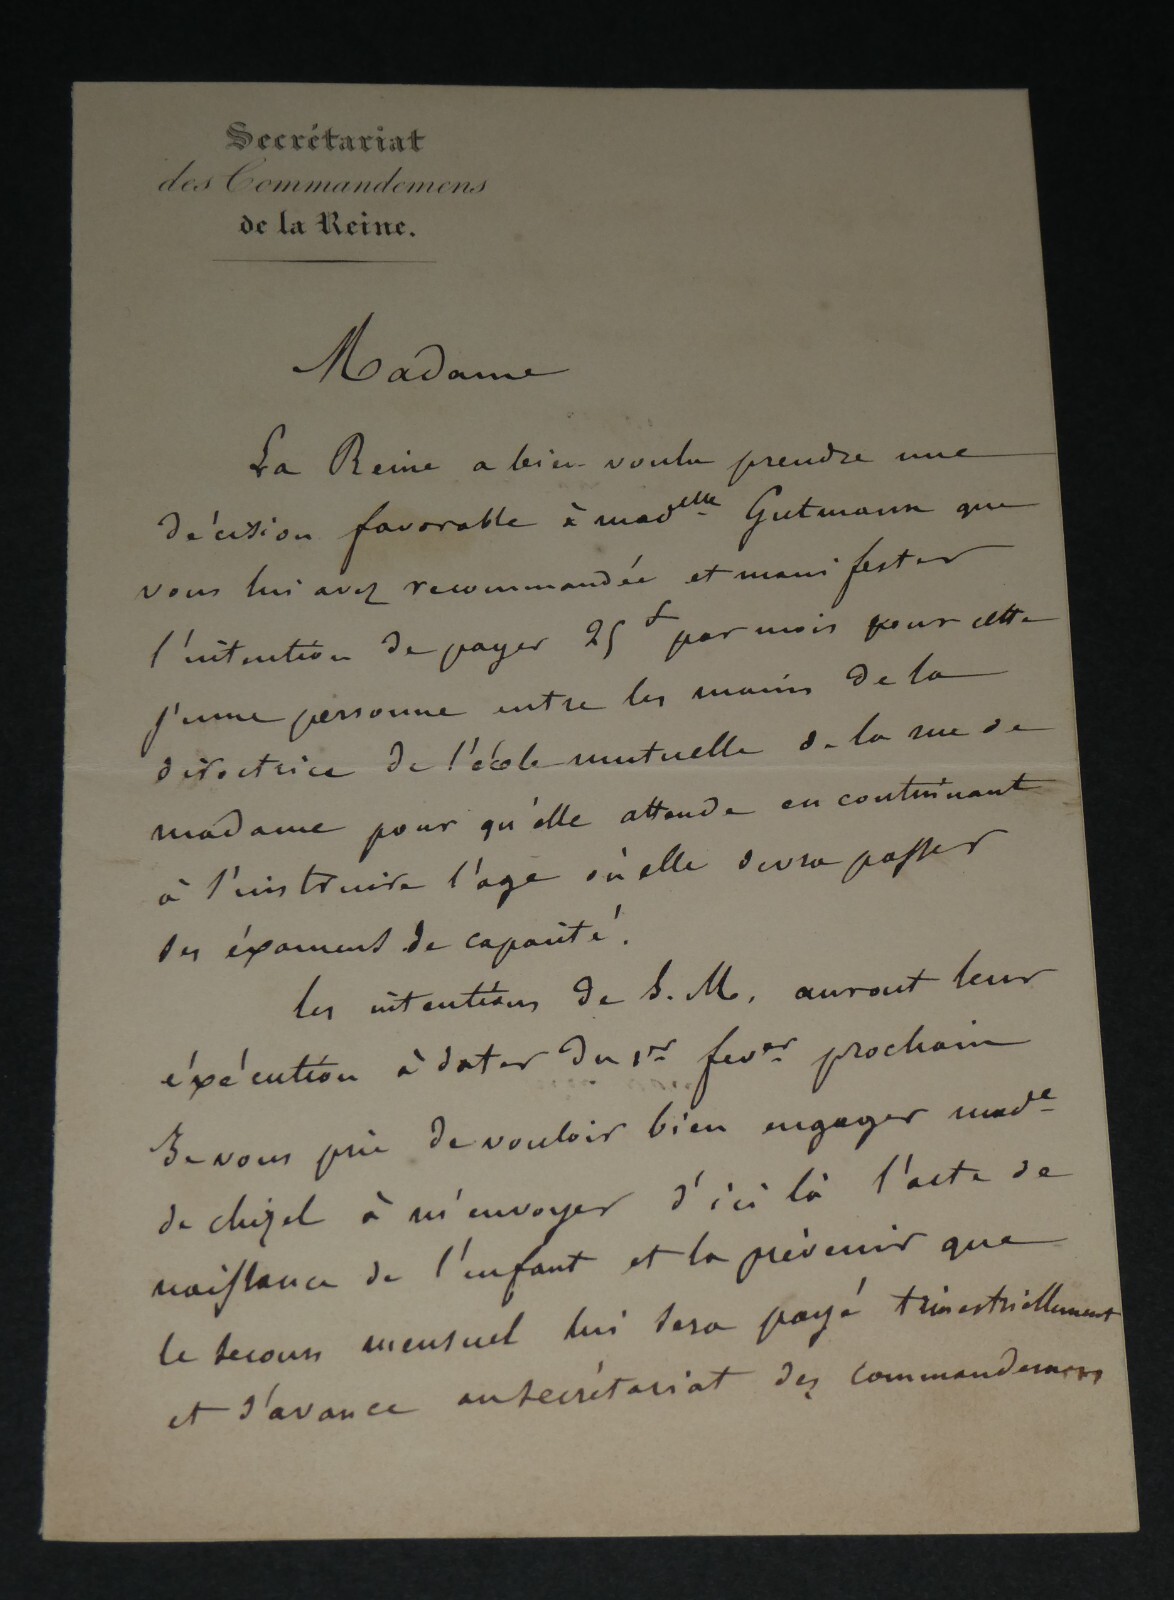 Secrétariat
des Commandemens
de la Reine.
Madame
La Reine a bien voulu prendre une
décision favorable à mad.elle Gutmann que
vous lui avez recommandée et manifester
l'intention de payer 25 f par mois pour cette
jeune personne entre les mains de la
directrice de l'école mutuelle de la rue de
madame pour qu'elle attende en continuant
à l'instruire l'age où elle devra passer
ses éxamens de capacité.
les intentions de S. M. auront leur
éxécution à dater du 1er fever prochain
Je vous prie de vouloir bien engager made
de chizel à m'envoyer d'ici là l'acte de
naissance de l'enfant et la prévenir que
le secours mensuel lui sera payé trimestriellement
et d'avance au secrétariat des commandemens